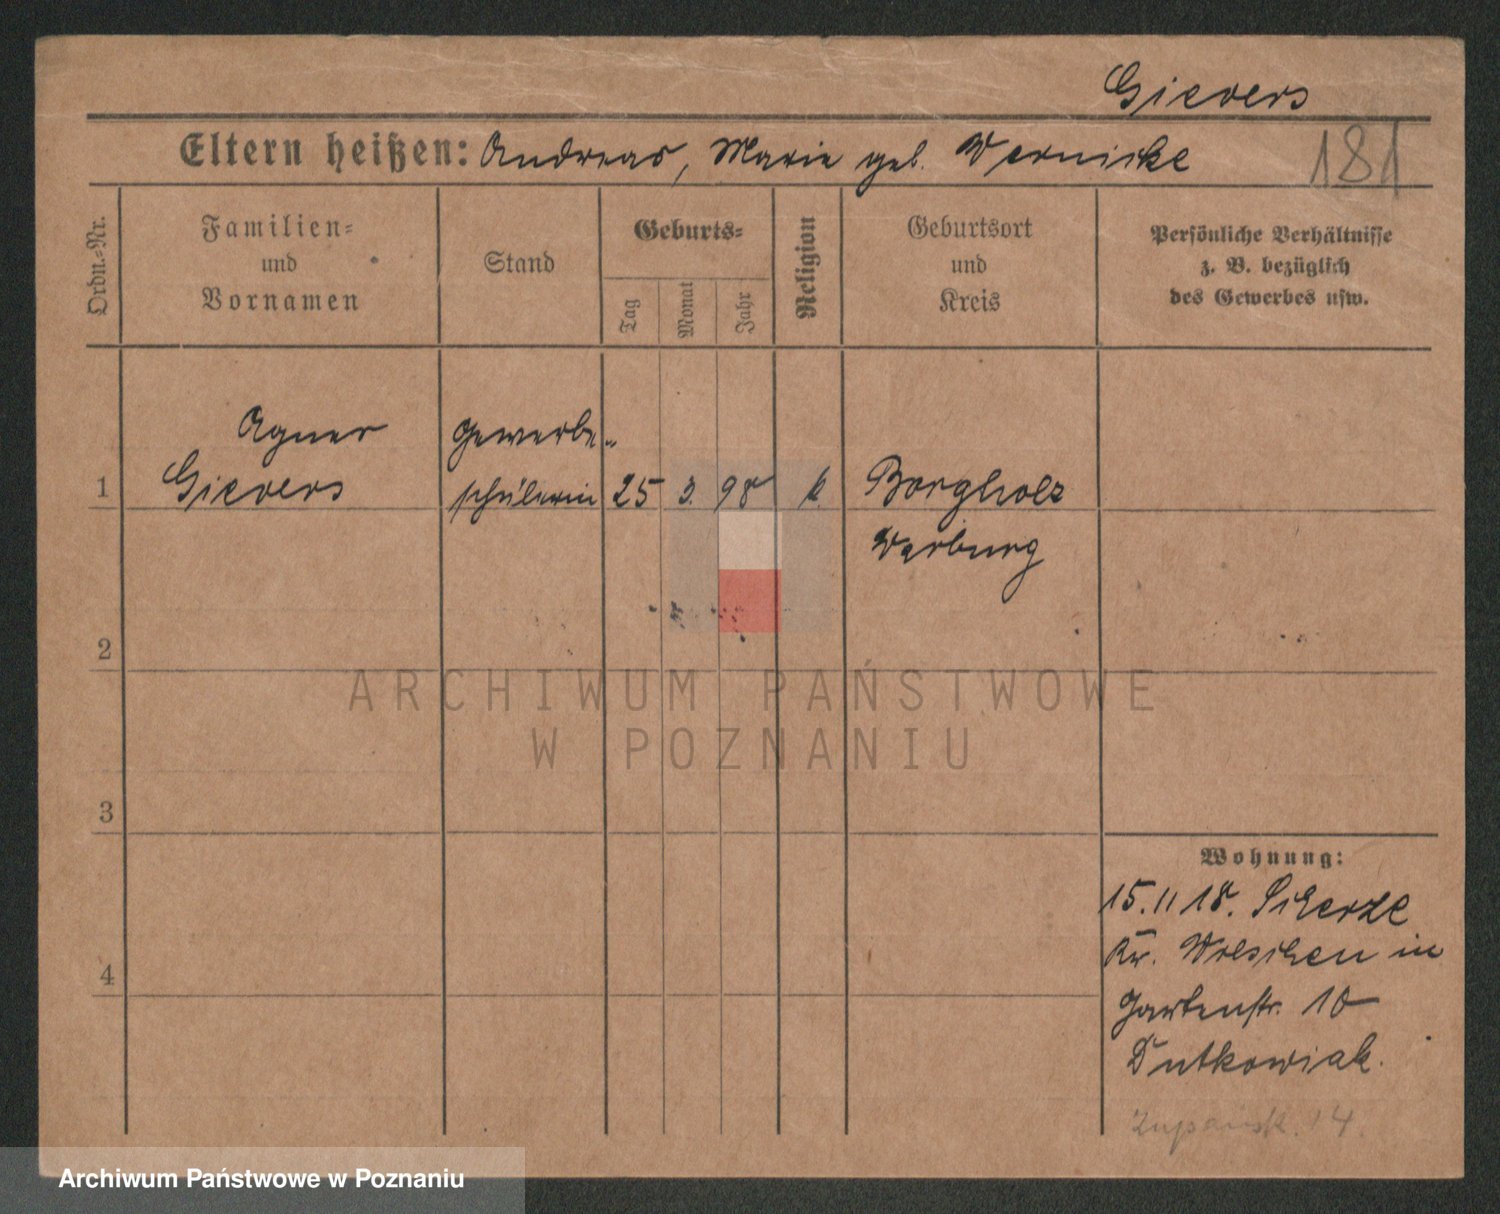 Gievers
Eltern heißen: Andreas, Marie geb. Wernicke
181
Ordn.-Nr.
Familien-
und
Vornamen
Stand
Geburts-
Tag
Monat
Jahr
Religion
Geburtsort
und
Kreis
Persönliche Verhältnisse
z. B. bezüglich
des Gewerbes usw.
Agnes Gewerbe-
1 Gievers schülerin 25 3. 98 k. Borgholz
Warburg
2
ARCHIWUM PAŃSTWOWE
W POZNANIU
3
Wohnung:
15.11 18.
Kr. Wreschen in
4
Gartenstr. 10
Dutkowiak.
14.
Archiwum Państwowe w Poznaniu